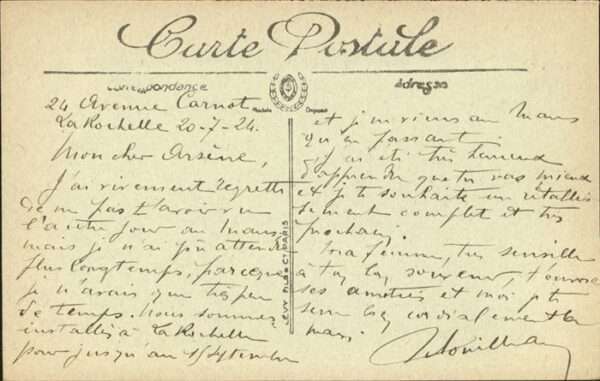 Carte Postale
Correspondance
Adresse
Modèle Déposé
LEVY FILS & Cie PARIS
24 Avenue Carnot
La Rochelle 20-7-24.
Mon cher Arsène,
J'ai vivement regretté
de ne pas t'avoir vu
l'autre jour au Mans.
mais je n'ai pu attendre
plus longtemps, parceque
je n'avais que très peu
de temps. Nous sommes
installés à La Rochelle
pour jusqu'au 15 septembre
et je reviens au Mans
qu'en passant.
J'ai été très heureux
d'apprendre que tu vas mieux
et je te souhaite un rétablis
sement complet et très
prochain.
Ma femme, très sensible
à ton souvenir, t'envoie
ses amitiés et moi je te
serre cordialement la
main.